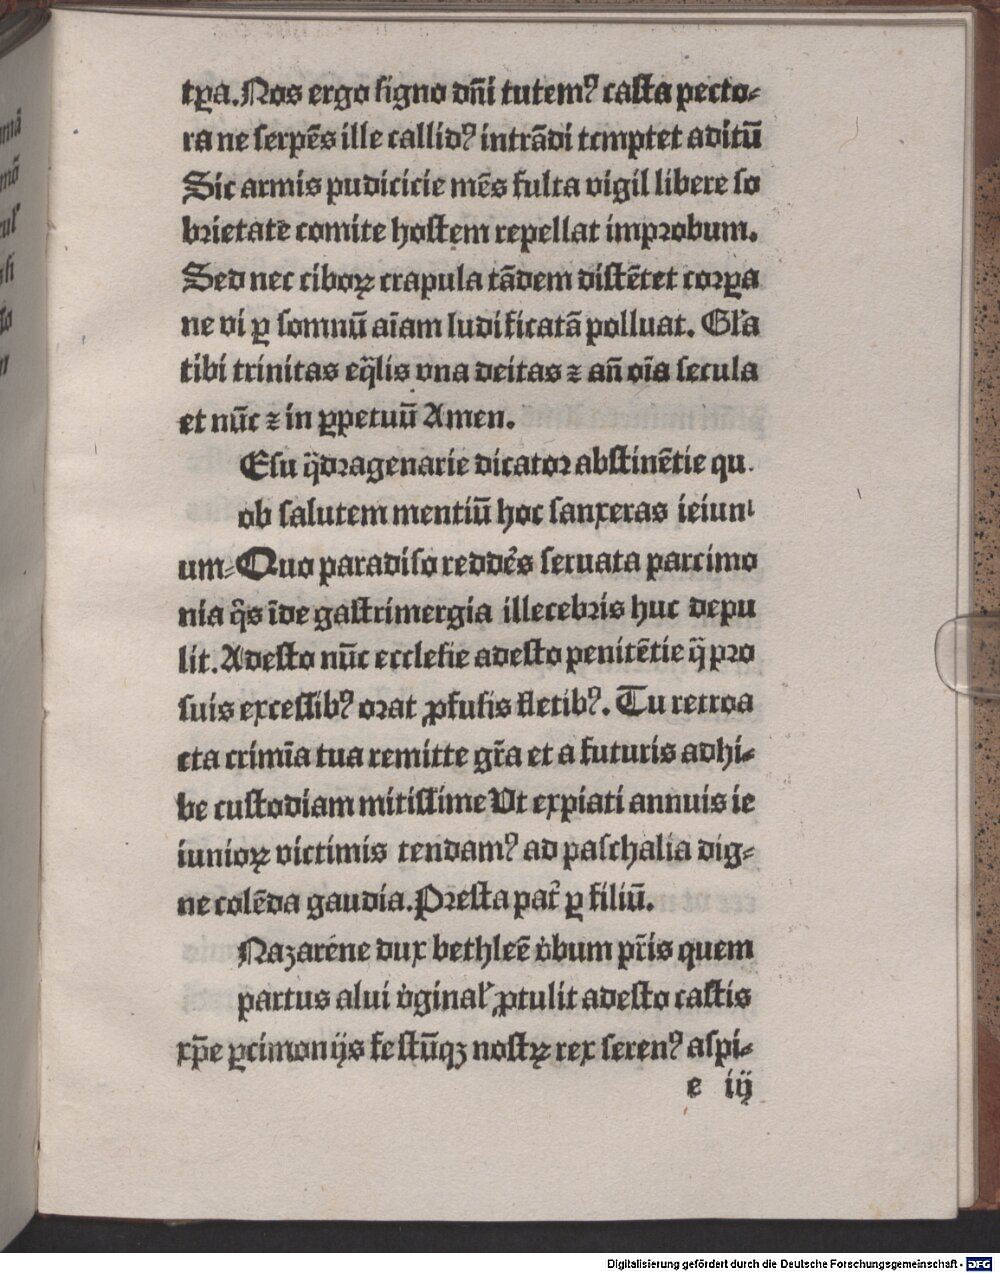 tꝑa. Nos ergo signo dn̄i tutemꝰ casta pecto⸗
ra ne serpēs ille callidꝰ intrādi temptet aditū
Sic armis pudicicie mēs fulta vigil libere so
brietate comite hostem repellat improbum.
Sed nec ciboꝝ crapula tādem distētet corꝑa
ne vi ꝑ somnū aīam ludificatā polluat. Gl'a
tibi trinitas eq̄lis vna deitas ⁊ an̄ oīa secula
et nūc ⁊ in ꝑpetuū Amen.
Esu q̈dragenarie dicator abstinētie qu.
ob salutem mentiū hoc sanxeras ieiuni
um⸗ Quo paradiso reddēs seruata parcimo
nia q̄s īde gastrimergia illecebris huc depu
lit. Adesto nūc ecclesie adesto penitētie q̈ pro
suis excessibꝰ orat ꝓfusis fletibꝰ. Tu retroa
cta crimīa tua remitte gr̄a et a futuris adhi⸗
be custodiam mitissime Vt expiati annuis ie
iunioꝝ victimis tendamꝰ ad paschalia dig⸗
ne colēda gaudia. Presta pat̄ ꝑ filiū.
Nazarene dux bethleē v̾bum pr̄is quem
partus alui v̾ginal' ꝓtulit adesto castis
xp̄e ꝑcimonijs festūqꝫ nostꝝ rex serenꝰ aspi⸗
e iij
Digitalisierung gefördert durch die Deutsche Forschungsgemeinschaft - DFG